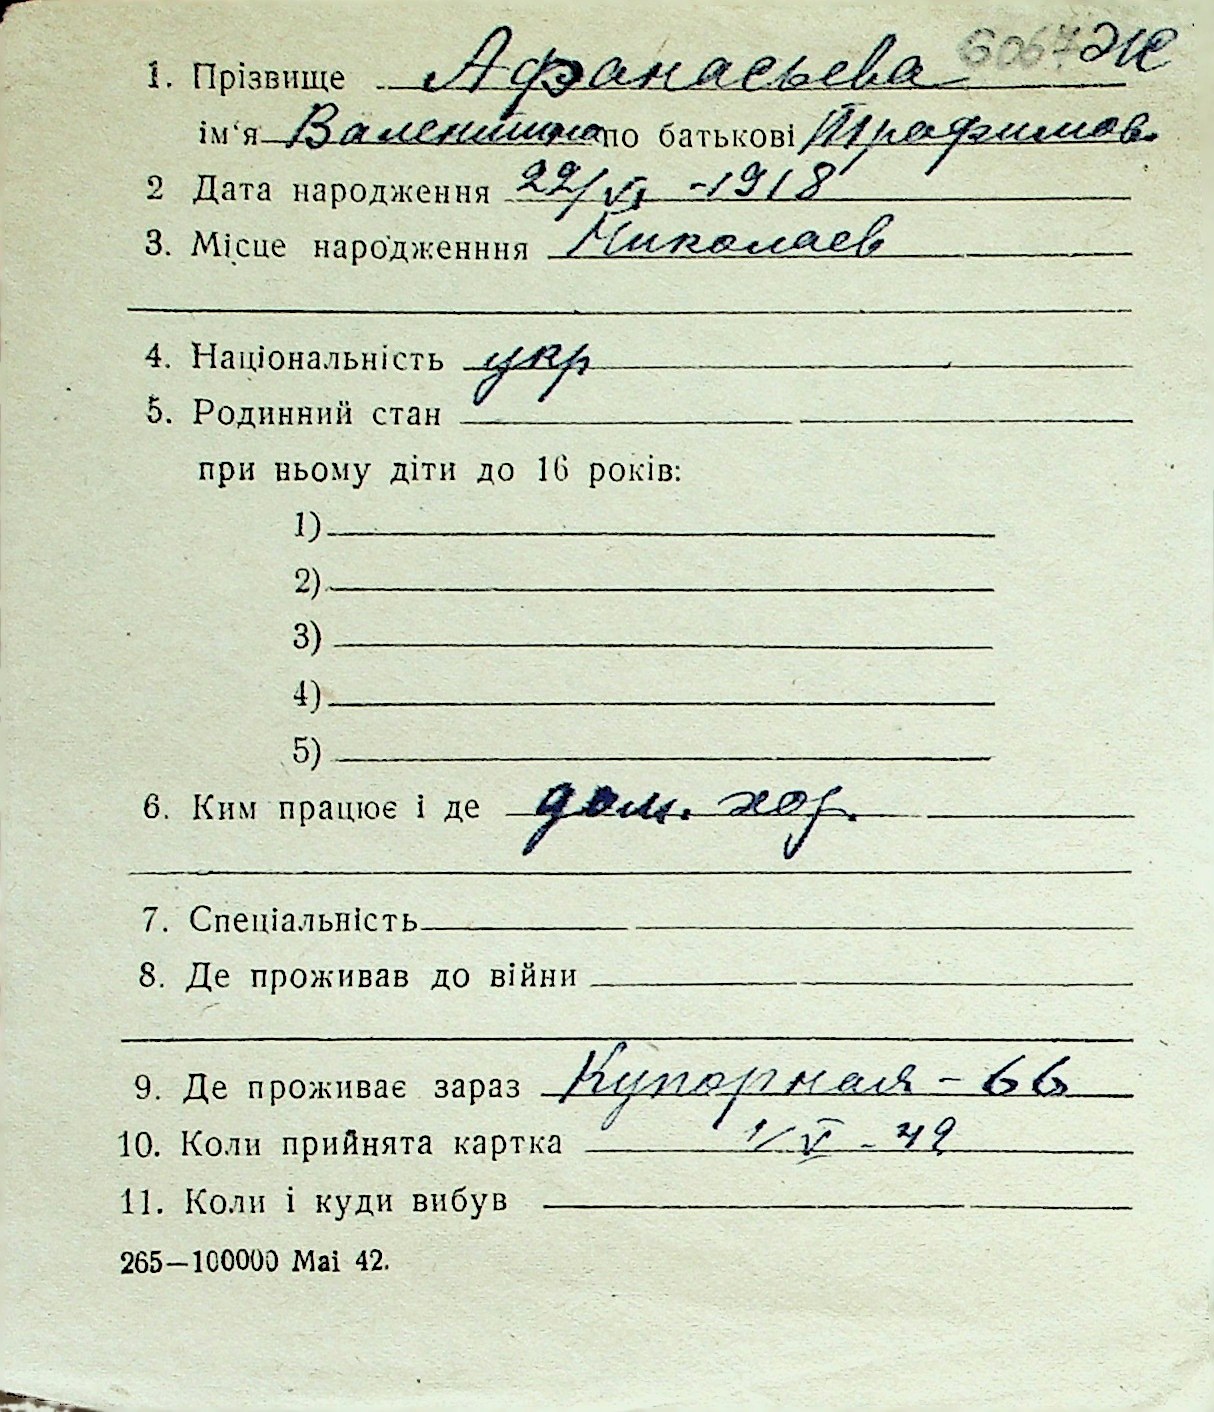 6067 Ж
1. Прізвище Афанасьева
ім‘я Валентина по батькові Трафимов.
2 Дата народження 22/VI -1918
3. Місце народженння Николаев
4. Національність укр
5. Родинний стан
при ньому діти до 16 років:
1)
2)
3)
4)
5)
6. Ким працює і де дом. хоз.
7. Спеціальність
8. Де проживав до війни
9. Де проживає зараз Купорная - 66
10. Коли прийнята картка 1/V - 42
11. Коли і куди вибув
265—100000 Mai 42.